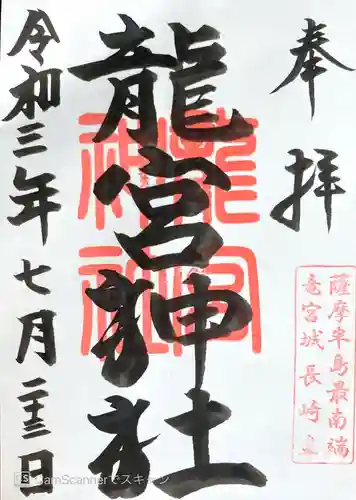 奉拝
龍宮神社
令和三年七月二十三日
龍宮
神社
薩摩半島最南端
竜宮城長崎鼻
CS CamScannerでスキャン